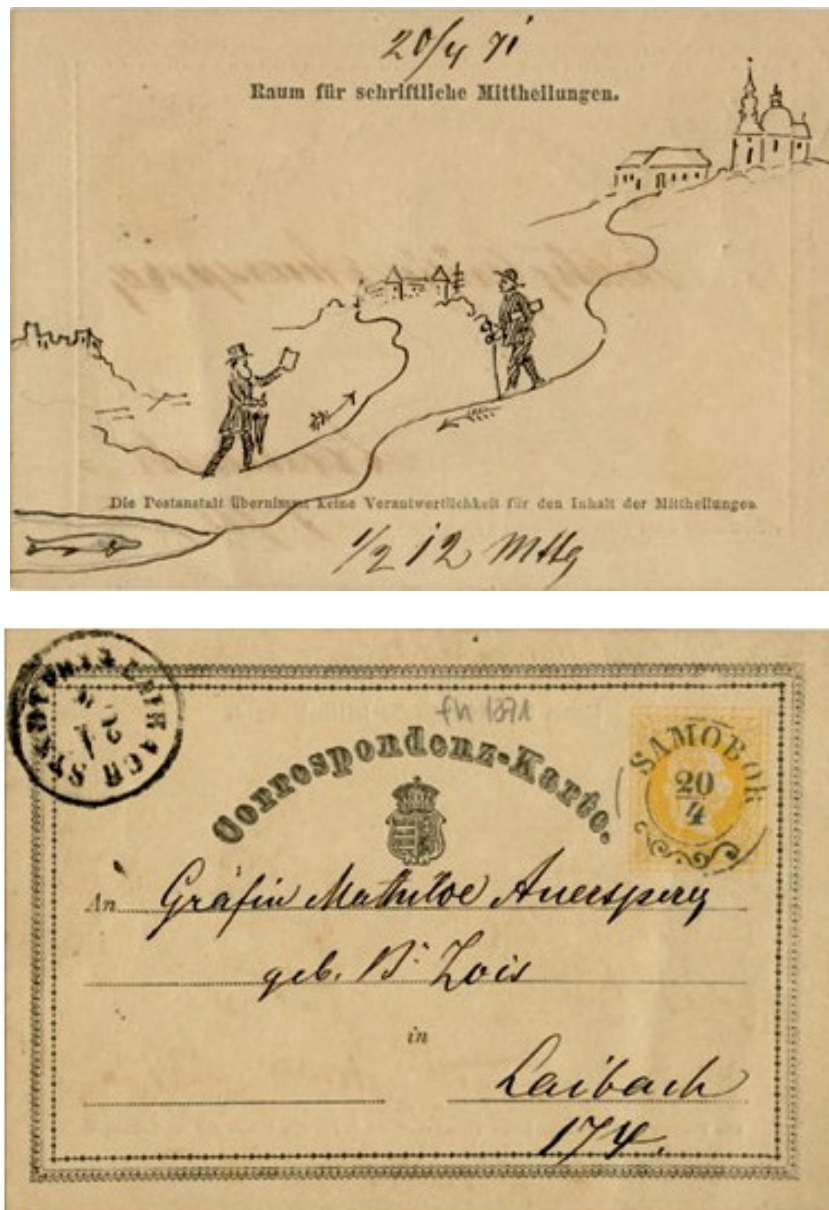 20/4 71
Raum für schriftliche Mittheilungen.
Die Postanstalt übernimmt keine Verantwortlichkeit für den Inhalt der Mittheilungen
1/2 12 Mttg
fh 1871
Correspondenz-Karte.
SAMOBOR
20
4
An Gräfin Mathilde Auersperg
geb. Bⁿ Zois
in
Laibach
174.